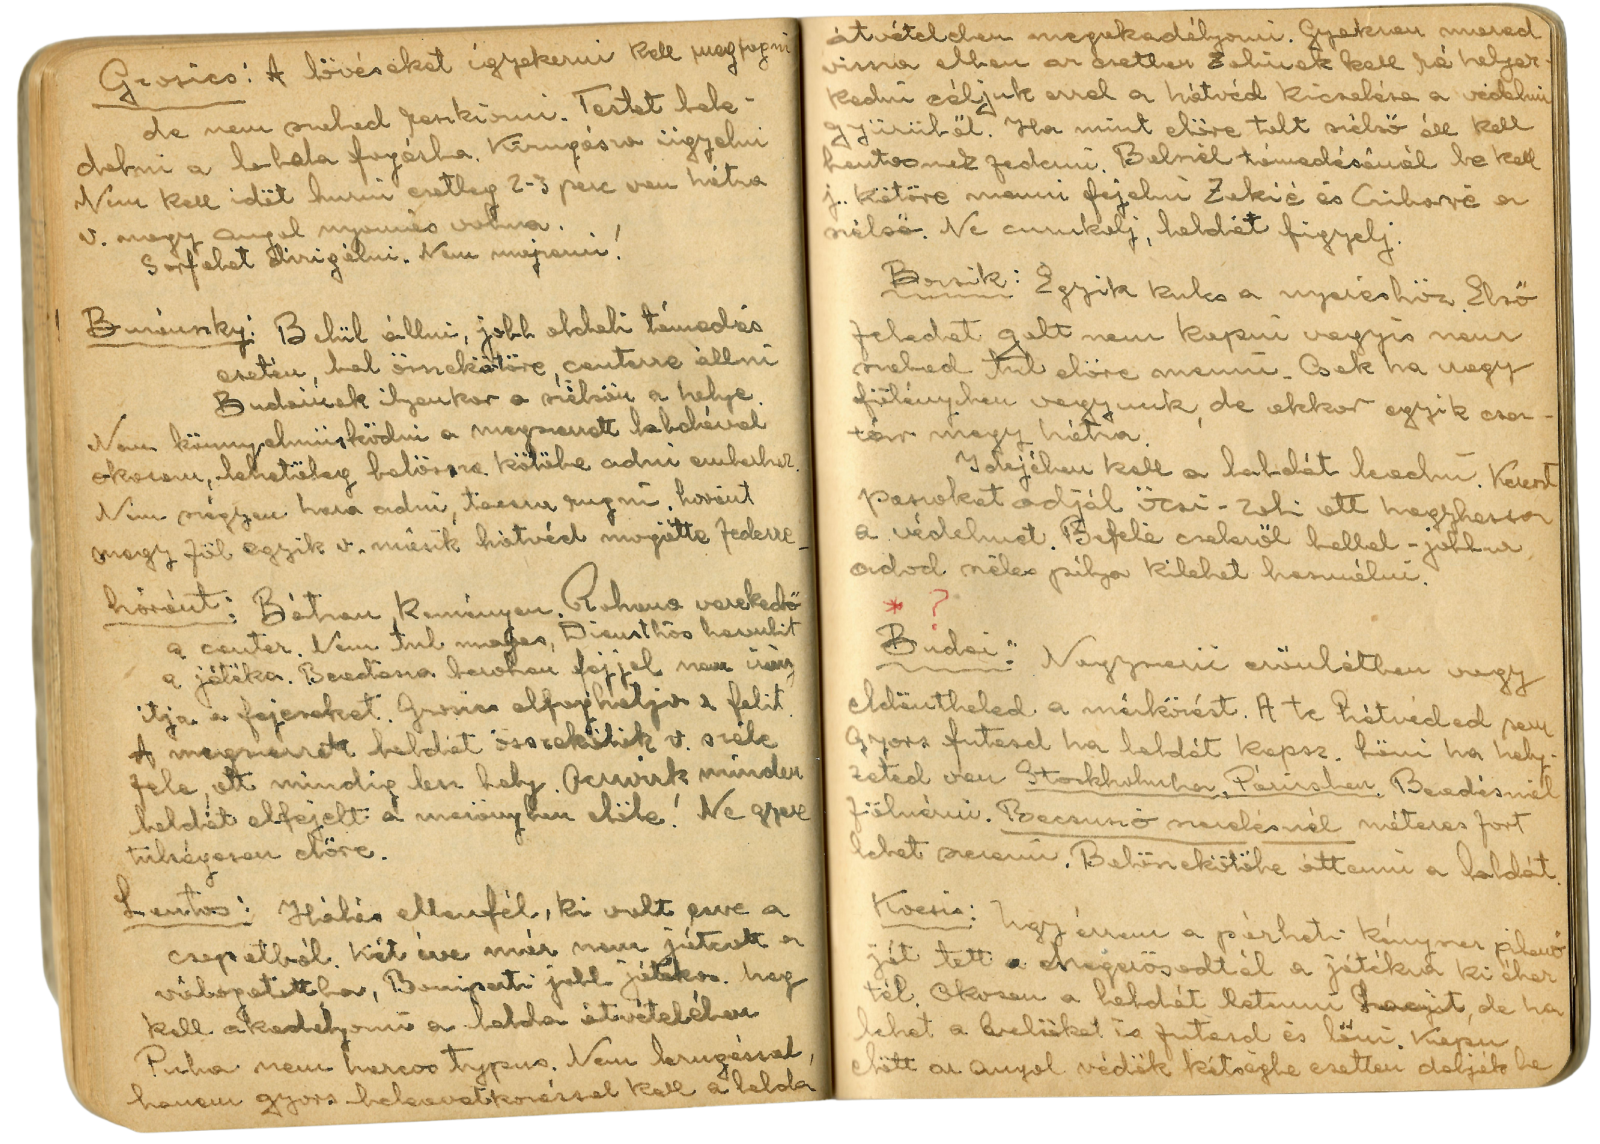 Grosics: A lövéseket igyekezni kell megfogni
de nem szabad reszkirozni. Testet bele-
dobni a labda fogásba. Kirugásra ügyelni
Nem kell időt huzni esetleg 2-3 perc van hátra
v. nagy angol nyomás volna.
Sorfalat dirigálni. Nem majrézni!
Buzánszky: Belül állni, jobb oldali támadás
esetén, bal összekötőre, centerre állni
Budainak ilyenkor a szélsőn a helye.
Nem könnyelmüsködni a megszerzett labdával
okosan, lehetőleg balössze kötőbe adni emberhez.
Nem szégyen haza adni, taccsra rugni. Lóránt
megy föl egyik v. másik hátvéd mögötte fedezze
Lóránt: Bátran, keményen. Rohanó verekedő
a center. Nem tul magas, Diensthös hasonlit
a játéka. Beadásra berohan fejjel nem irány
itja a fejeseket. Grosics elfoghatja a felit.
A megszerzett labdát összekötők v. széle
fele, ott mindig lesz hely. Acsarok minden
labdát elfejelt a mezőnyben előle! Ne gyere
tulságosan előre.
Lantos: Hálás ellenfél, ki volt esve a
csapatból. Két éve már nem játszott a
válogatottba, Boniperti jobb játékos. Meg
kell akadályozni a labda átvételében
Puha nem harcos typus. Nem lerugással,
hanem gyors beleavatkozással kell a labda
átvételben megakadályozni. Gyakran marad
vissza ebben az esetben Zakinak kell rá helyez-
kedni céljuk ezzel a hátvéd kicsalása a védelmi
gyürüből. Ha mint előre tolt szélső áll kell
Lantosnak fedezni. Balszél támadásánál be kell
j. kötőre menni fejelni Zakié és Csiboré a
szélső. Ne csunkolj, labdát figyelj.
Bozsik: Egyik kulcs a nyeréshöz. Első
feladat golt nem kapni vagyis nem
szabad tul előre menni. Csak ha nagy
fölényben vagyunk, de akkor egyik csa-
tár megy hátra.
Idejében kell a labdát leadni. Keresd
passokat adjál Öcsi - Zoli ott hagyhassa
a védelmet. Befelé cselezől ballal - jobbra
adod széles pálya kilehet használni.
* ?
Budai: Nagyszerü erőnlétben vagy
eldöntheted a mérkőzést. A te hátvéded sem
gyors futasd ha labdát kapsz. Lőni ha hely-
zeted van Stockholmban, Párisban. Beadásnál
fölnézni. Becsuszó szerelésnél méteres fort
lehet szerezni. Balösszekötőbe áttenni a labdát.
Kocsis: Ugy érzem a párheti kényszer pihenő
jót tett s megerősödtél a játékra ki éhez
tél. Okosan a labdát tetszeni hagyjt, de ha
lehet a belsőket is futasd és lőni. Kapu
előtt az angol védők kétségbe esetten dobják be